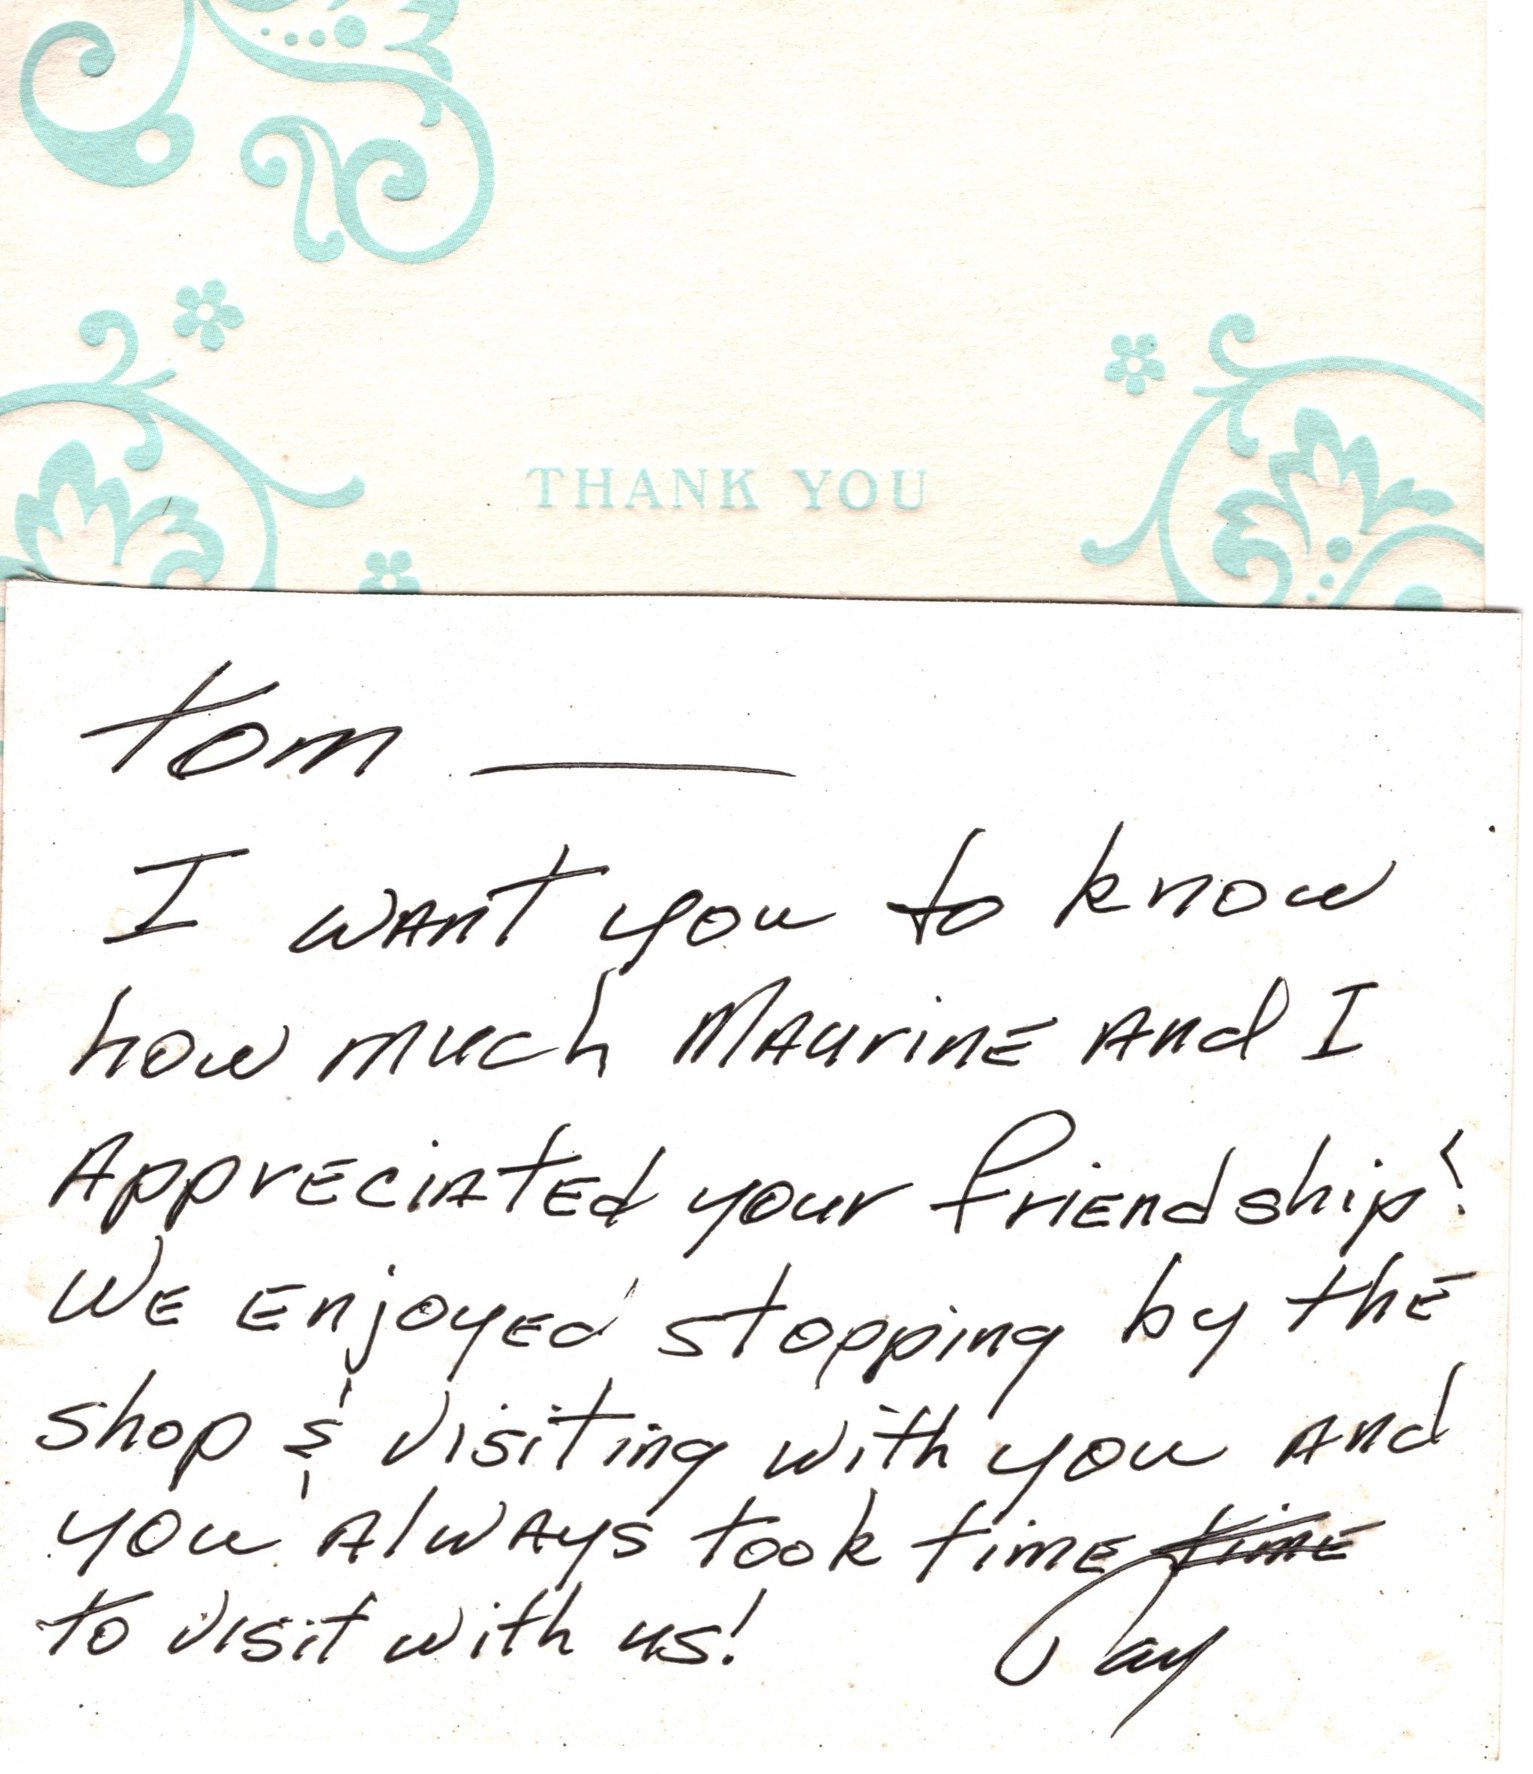 THANK YOU
Tom —
I want you to know
how much Maurine and I
Appreciated your friendship!
We enjoyed stopping by the
shop & visiting with you and
you always took time time
to visit with us! Jay